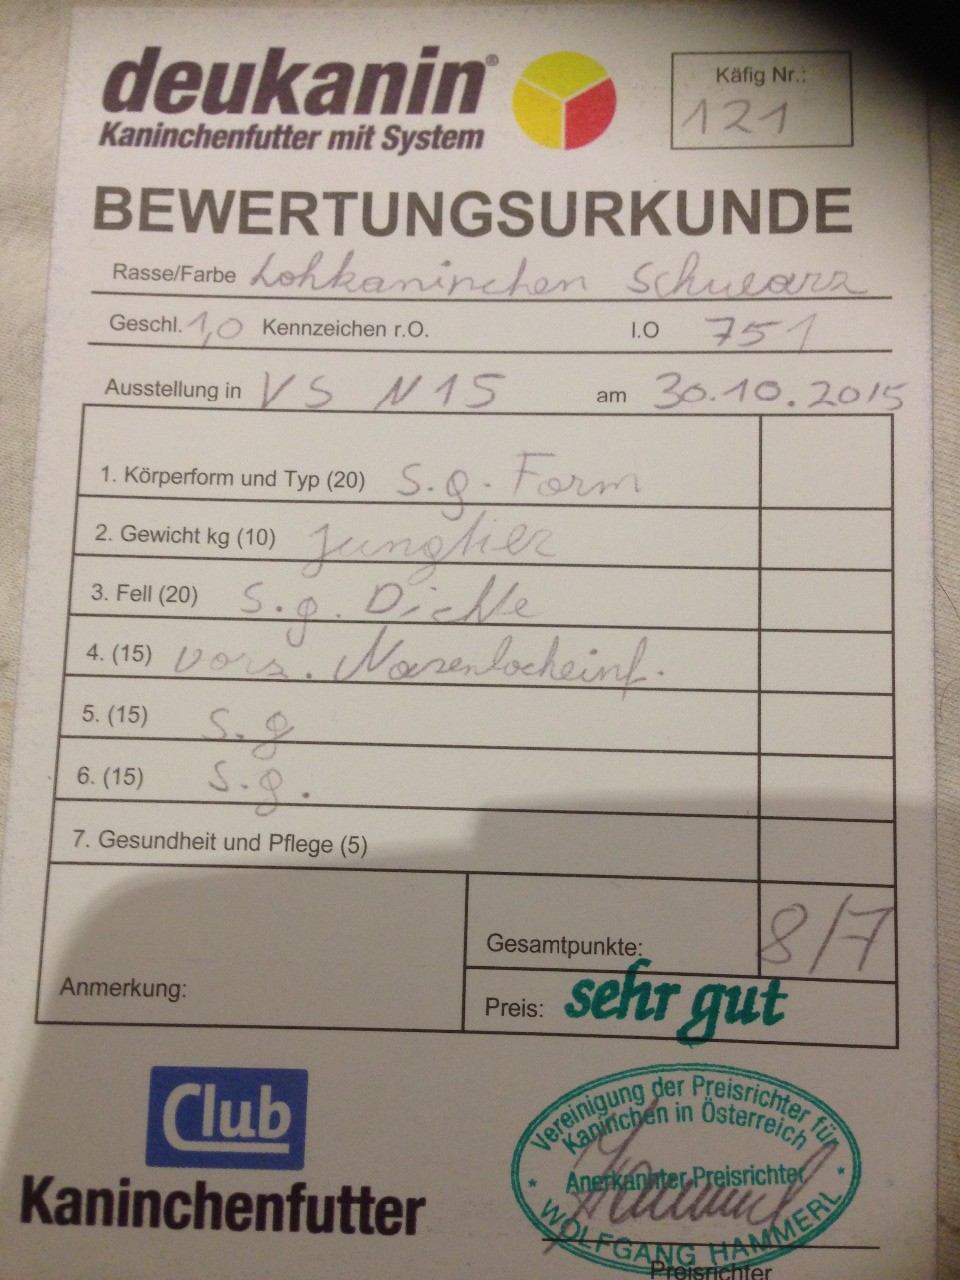 deukanin®
Kaninchenfutter mit System
Käfig Nr.:
121
BEWERTUNGSURKUNDE
Rasse/Farbe Lohkaninchen Schwarz
Geschl. 1,0 Kennzeichen r.O. l.O 751
Ausstellung in VS N15 am 30.10.2015
1. Körperform und Typ (20) s.g. Form
2. Gewicht kg (10) Jungtier
3. Fell (20) s.g. Dichte
4. (15) vorz. Nasenlocheinf.
5. (15) s.g
6. (15) s.g.
7. Gesundheit und Pflege (5)
Gesamtpunkte: 8/7
Anmerkung:
Preis: sehr gut
Club
Kaninchenfutter
Vereinigung der Preisrichter für
Kaninchen in Österreich
Anerkannter Preisrichter
WOLFGANG HAMMERL
Preisrichter